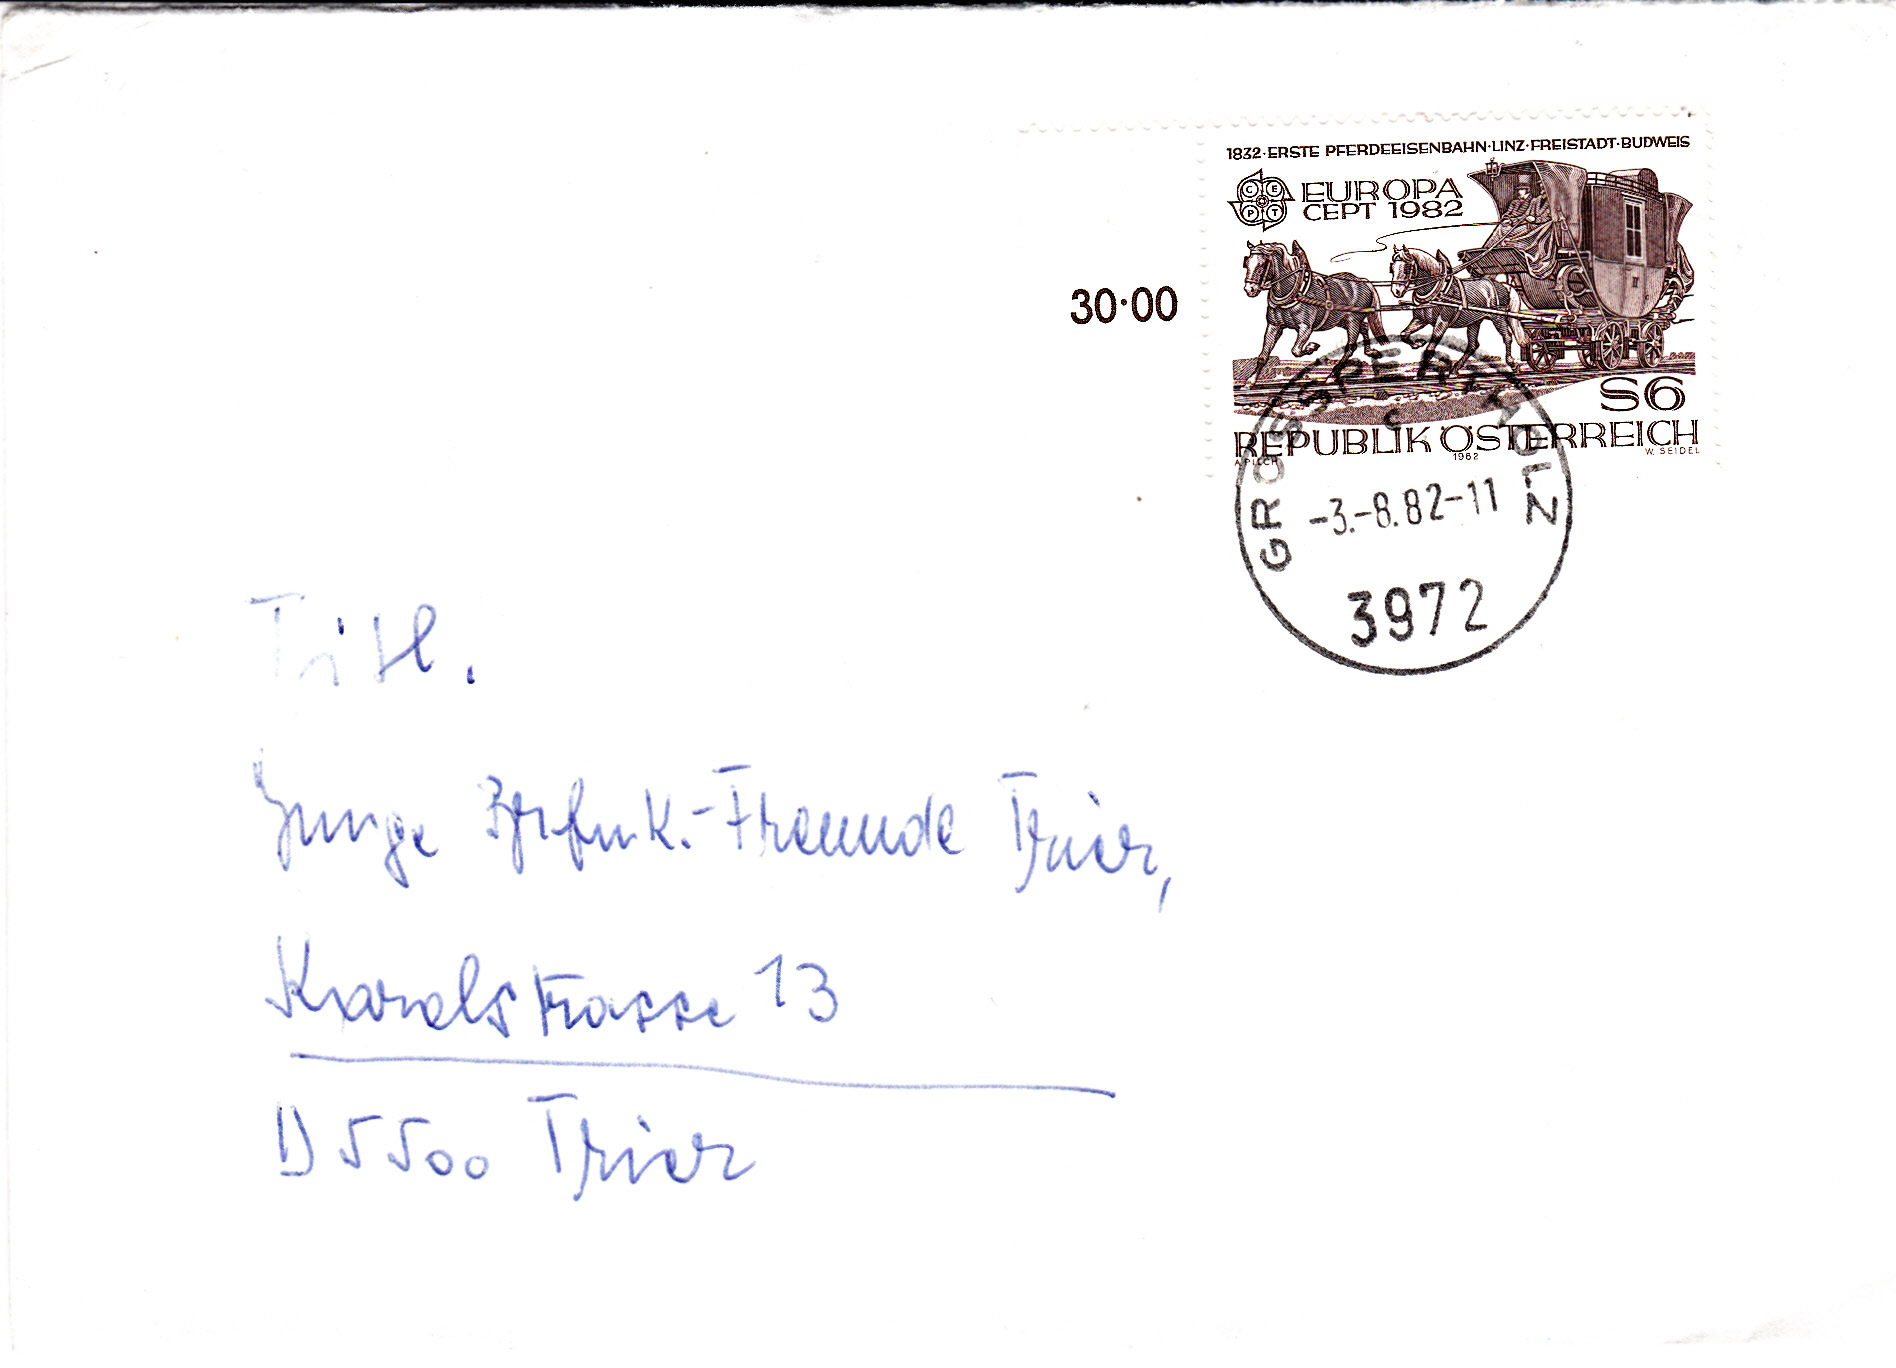 1832·ERSTE PFERDEEISENBAHN·LINZ·FREISTADT·BUDWEIS
C E P T
EUROPA
CEPT 1982
30·00
II
S6
REPUBLIK ÖSTERREICH
A. PILCH 1982 W. SEIDEL
GROSSPERTHOLZ
c
-3.-8.82-11
3972
Titl.
Junge Brfmk.-Freunde Trier,
Karlstrasse 13
D 5500 Trier